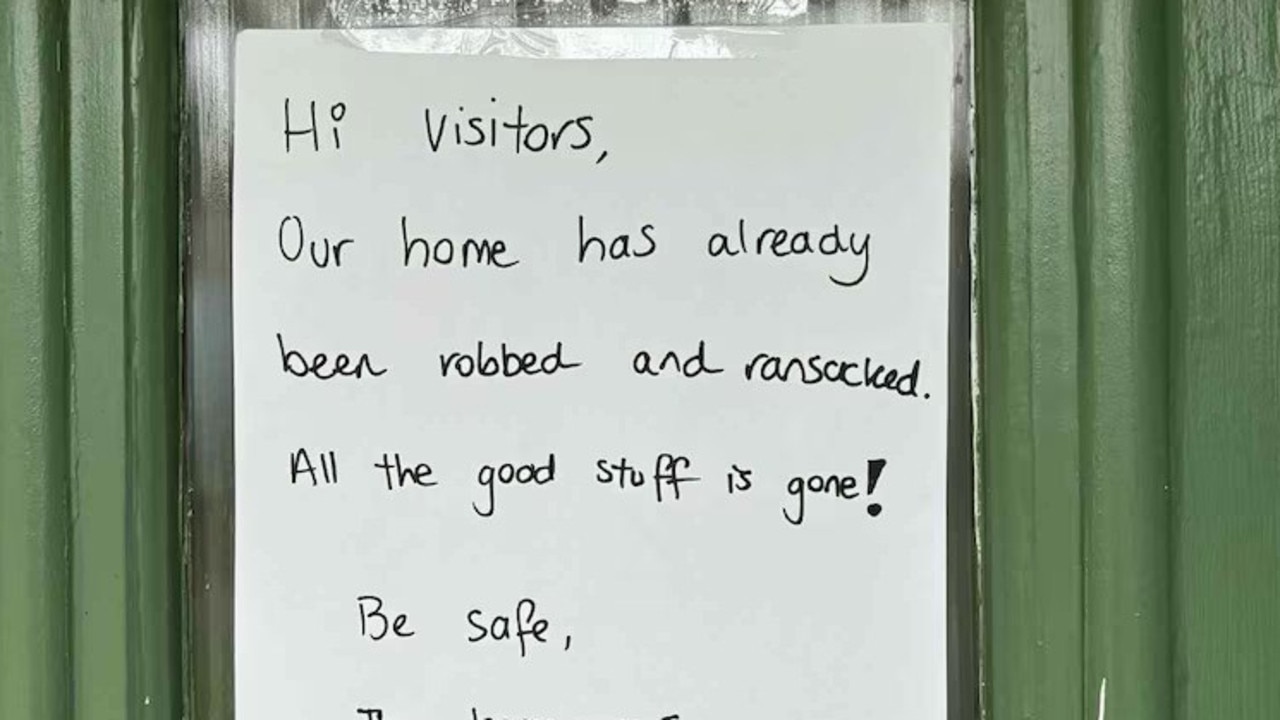 Hi Visitors,
Our home has already
been robbed and ransacked.
All the good stuff is gone!
Be safe,